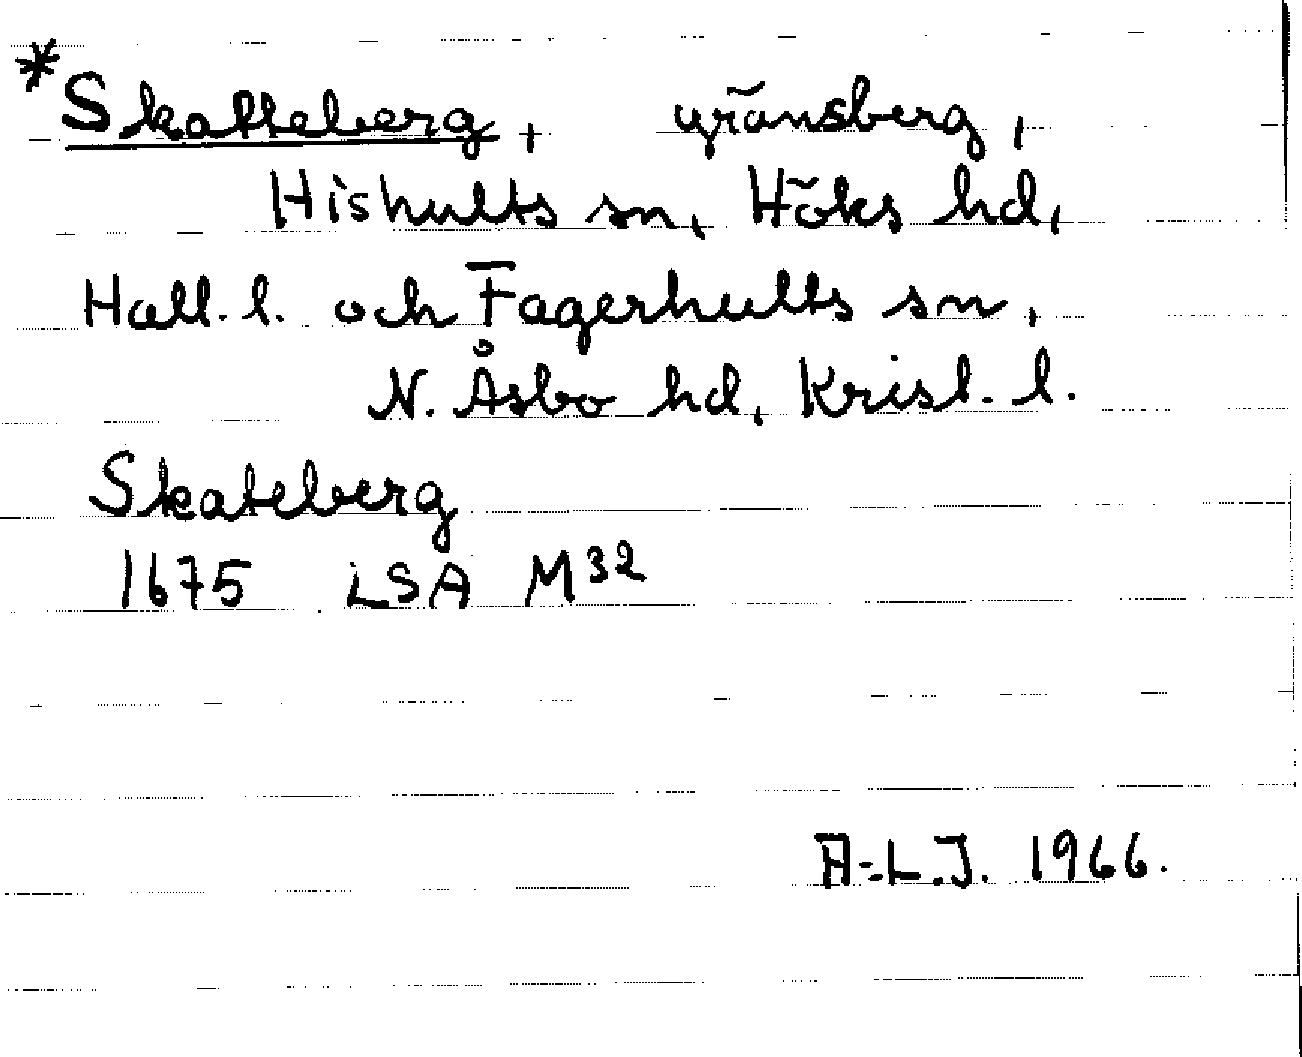 *Skatteberg, gränsberg,
Hishults sn, Höks hd,
Hall. l. och Fagerhults sn,
N. Åsbo hd, Krist. l.
Skateberg
1675 LSA M32
A-L.J. 1966.